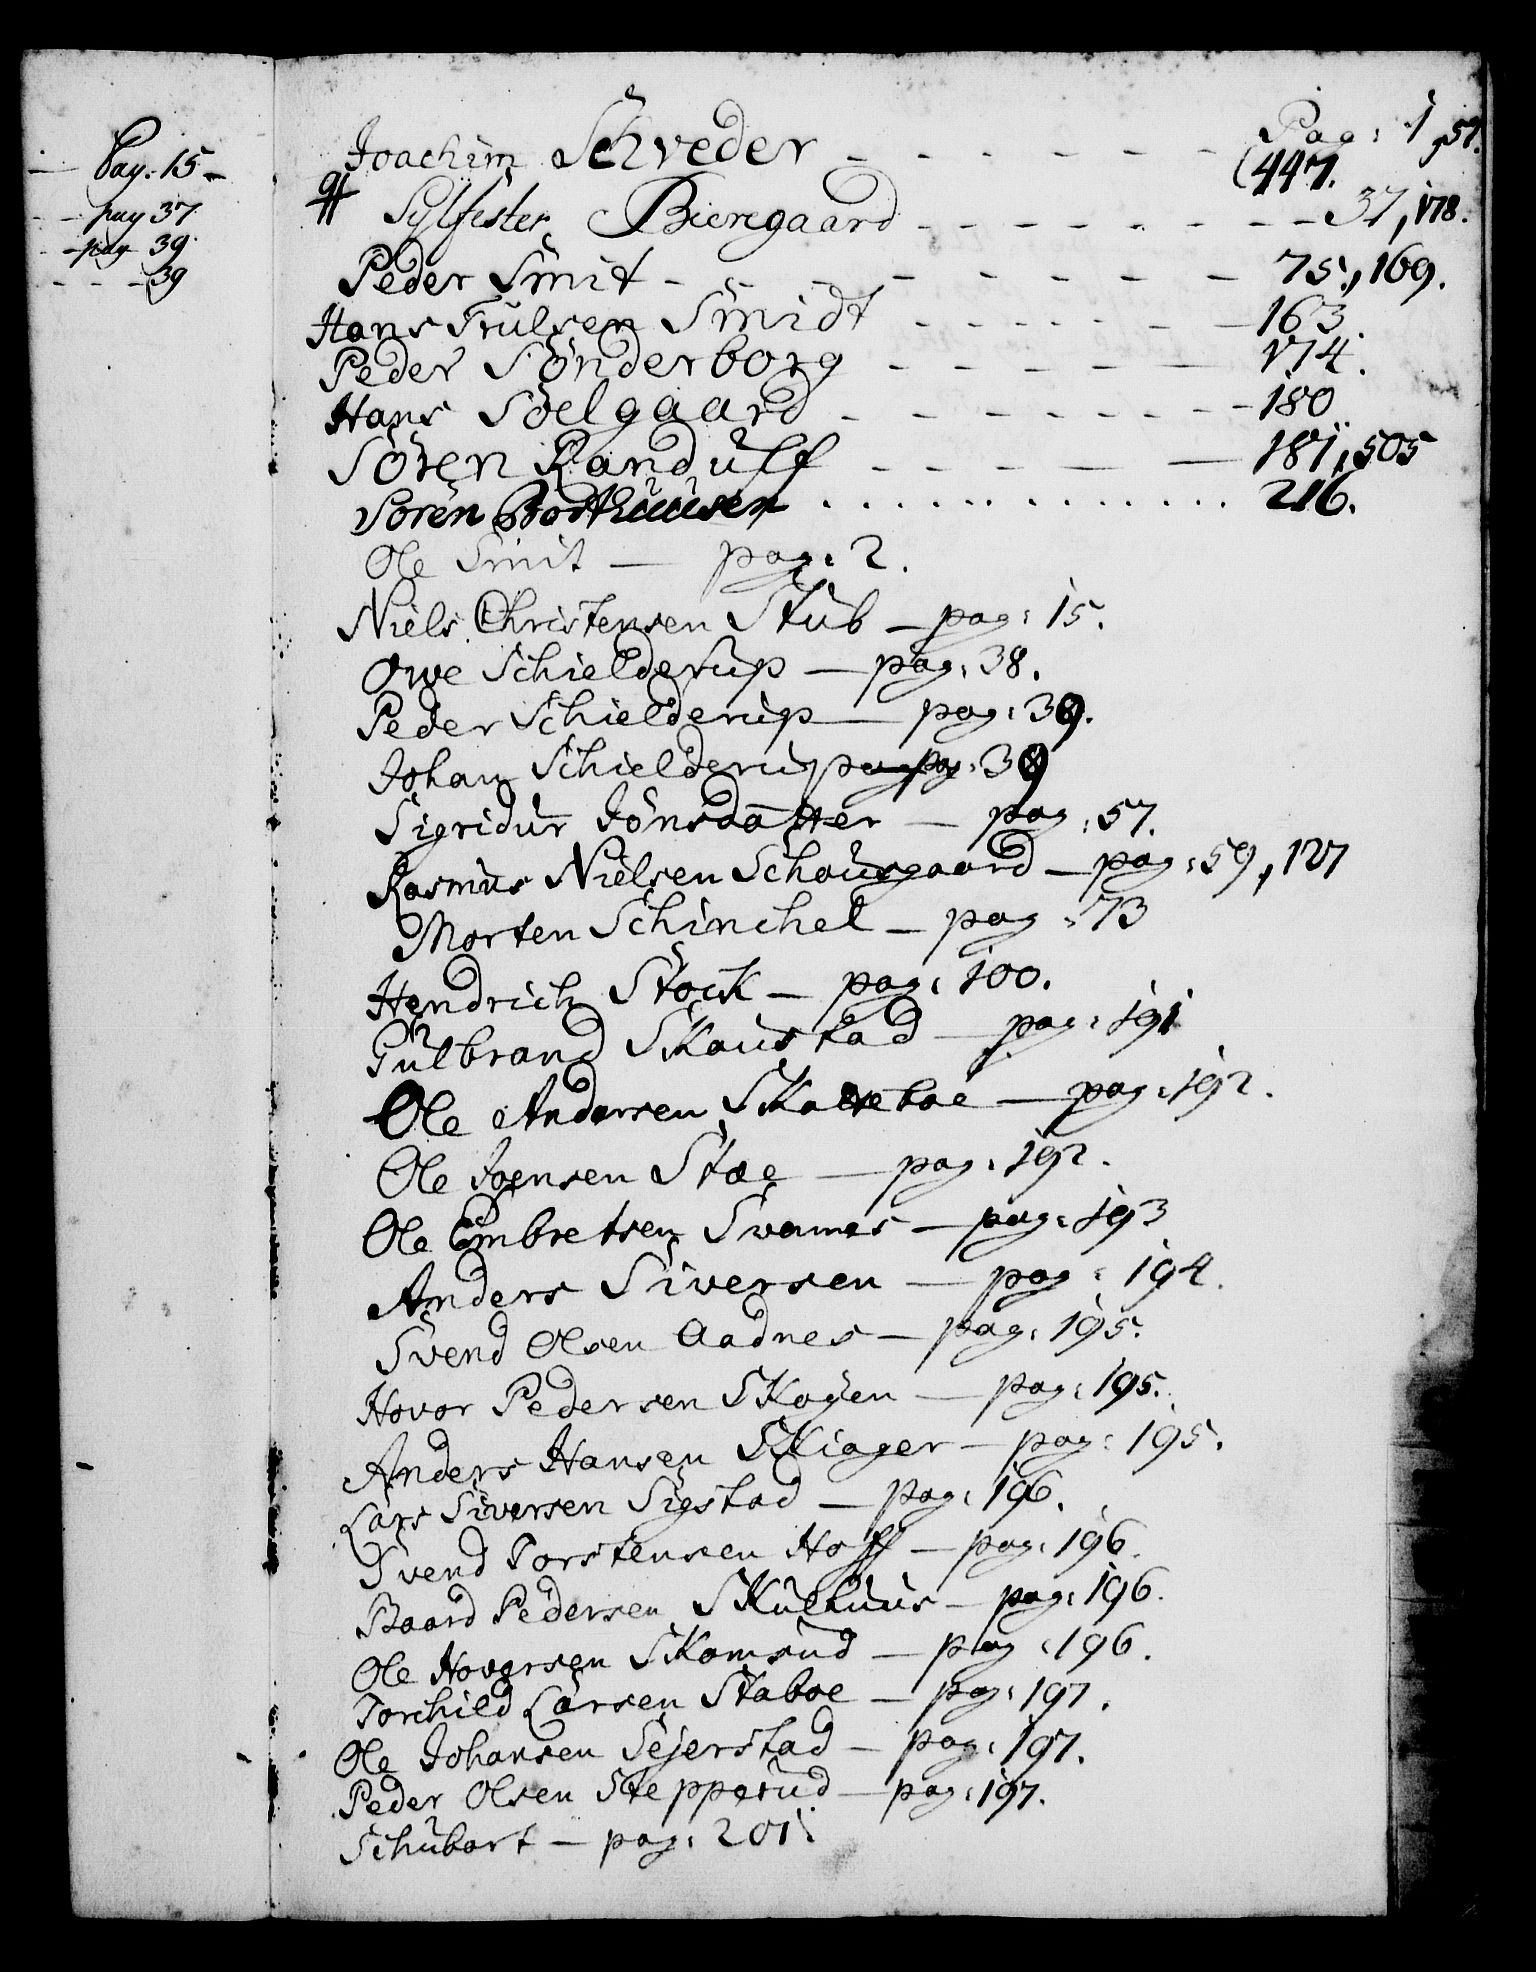 Pag. 15
pag 37
pag 39
39
Joachim Schreder - - - - - - Pag: 1, 57.
(447.
Sylfester Bieregaard - - - - - - - - 37, 178.
Peder Smit - - - - - - - - 75, 169.
Hans Trulsen Smidt - - - - - - - 163.
Peder Sönderborg - - - - - 174.
Hans Söelgaard - - - - - - - - 180
Sören Randulf - - - - - 181, 505
Sören Barthuusen . . . . . . . . . . . . . . 216.
Ole Smit — pag: 2.
Niels Christensen Stub — pag: 15.
Owe Schielderup — pag: 38.
Peder Schielderup — pag: 39.
Johan Schielderup pag: 39
Sigridur Jönsdatter — pag: 57.
Rasmus Nielsen Schousgaard — pag: 59, 127
Morten Schinchel — pag: 73
Hendrich Stock — pag: 100.
Gulbrand Skoustad — pag: 191
Ole Andersen — pag: 192.
Ole Joensen Stoe — pag: 192.
Ole Embretsen Svannes — pag: 193
Anders Siversen — pag: 194.
Svend Olsen Aadnes — pag: 195.
Hovor Pedersen Skoyen — pag: 195.
Anders Hansen Skiager — pag: 195.
Lars Siversen Sigstad — pag: 196.
Svend Torstensen Hoff — pag: 196.
Baard Pedersen Skulhuus — pag: 196.
Ole Hovorsen Skomsrud — pag: 196.
Torchild Larsen Staboe — pag: 197.
Ole Johansen Sejerstad — pag: 197.
Peder Olsen Stepperud — pag: 197.
Schubart — pag: 201.